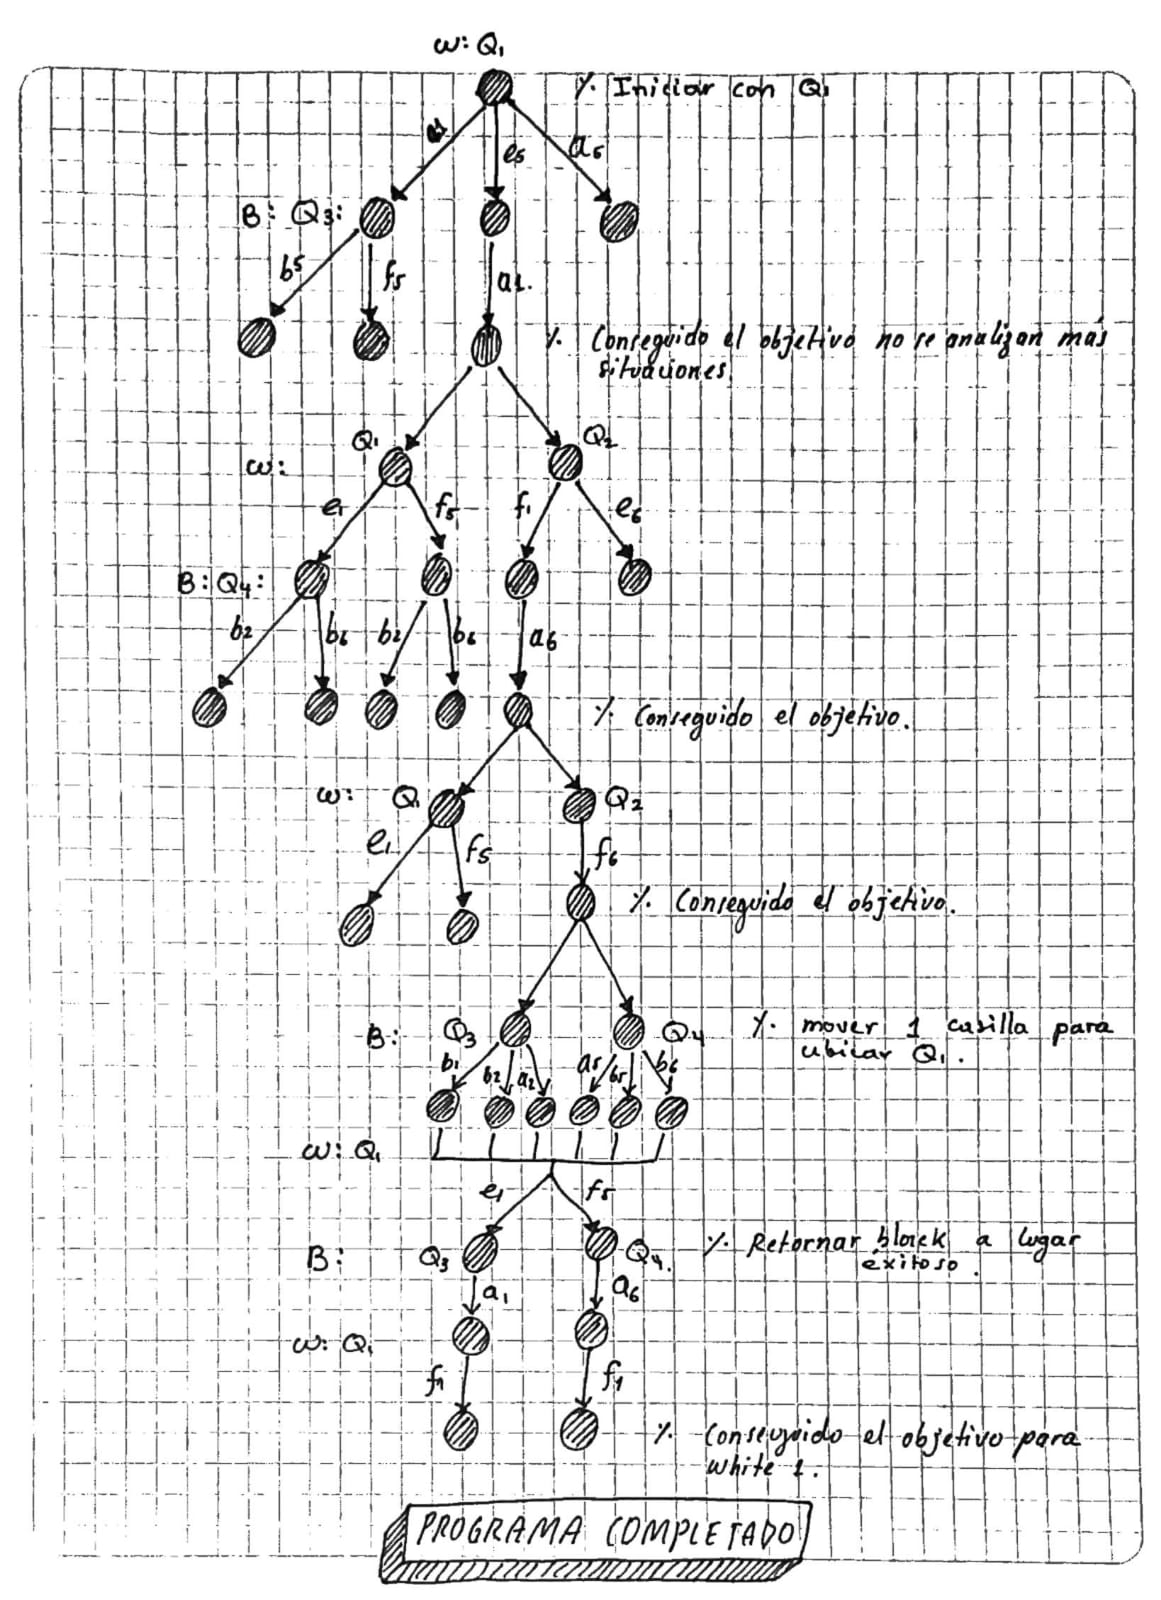 W: Q1
%. Iniciar con Q1
e5 a5
B: Q3:
b5 f5 a1.
%. Conseguido el objetivo no se analizan más
situaciones.
Q1 Q2
W:
e1 f5 f1 e6
B: Q4:
b2 b6 b2 b6 a6
%. Conseguido el objetivo.
W: Q1 Q2
e1 f5 f6
%. Conseguido el objetivo.
B: Q3 Q4 %. mover 1 casilla para
ubicar Q1.
b1 b2 a2 a5 b5 b6
W: Q1
e1 f5
B: Q3 Q4. %. Retornar black a lugar
éxitoso.
a1 a6
W: Q1
f1 f1
%. Conseguido el objetivo para
white 1.
PROGRAMA COMPLETADO